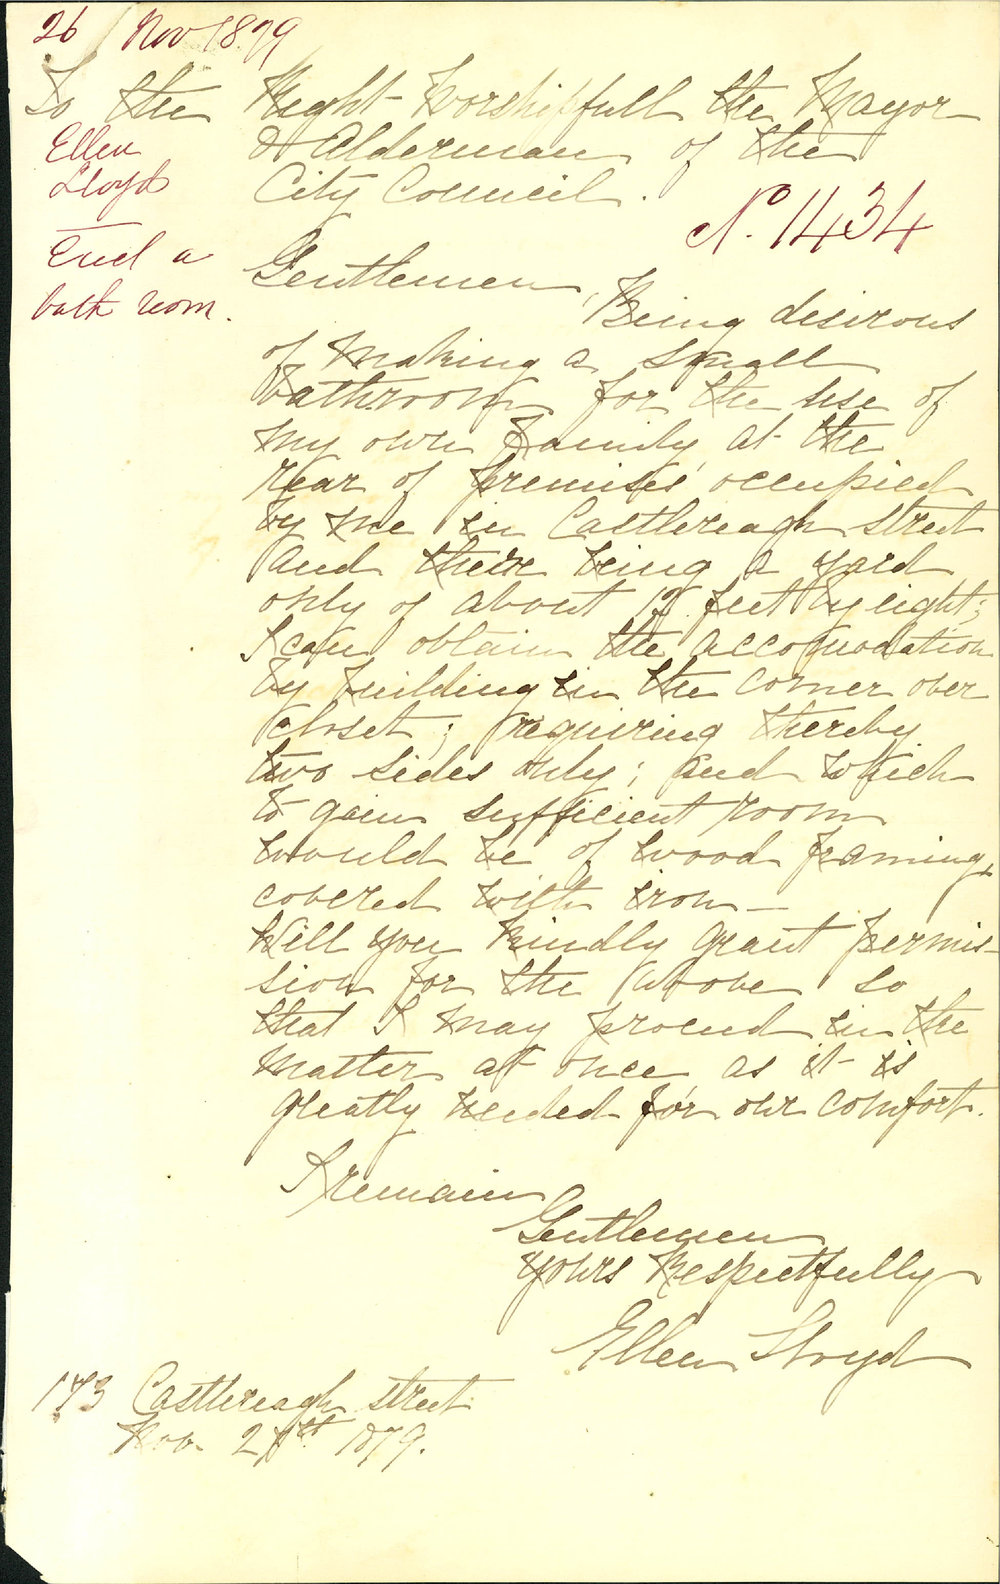 26 / Nov 1879
To the Right Worshipfull the Mayor
& Alderman of the
City Council.
Ellen
Lloyd
Erect a
bath room.
No. 1434
Gentlemen,
Being desirous
of making a small
bathroom for the use of
my own family at the
rear of premises occupied
by me in Castlereagh street
and there being a yard
only of about 12 feet by eight;
I can obtain the accomodation
by building in the corner over
closet; requiring thereby
two sides only; and which
to gain sufficient room
would be of wood framing,
covered with iron —
Will you kindly grant permis-
sion for the above so
that I may proceed in the
matter at once as it is
greatly needed for our comfort.
I remain
Gentlemen
Yours Respectfully
Ellen Lloyd
173 Castlereagh street
Nov. 1879.